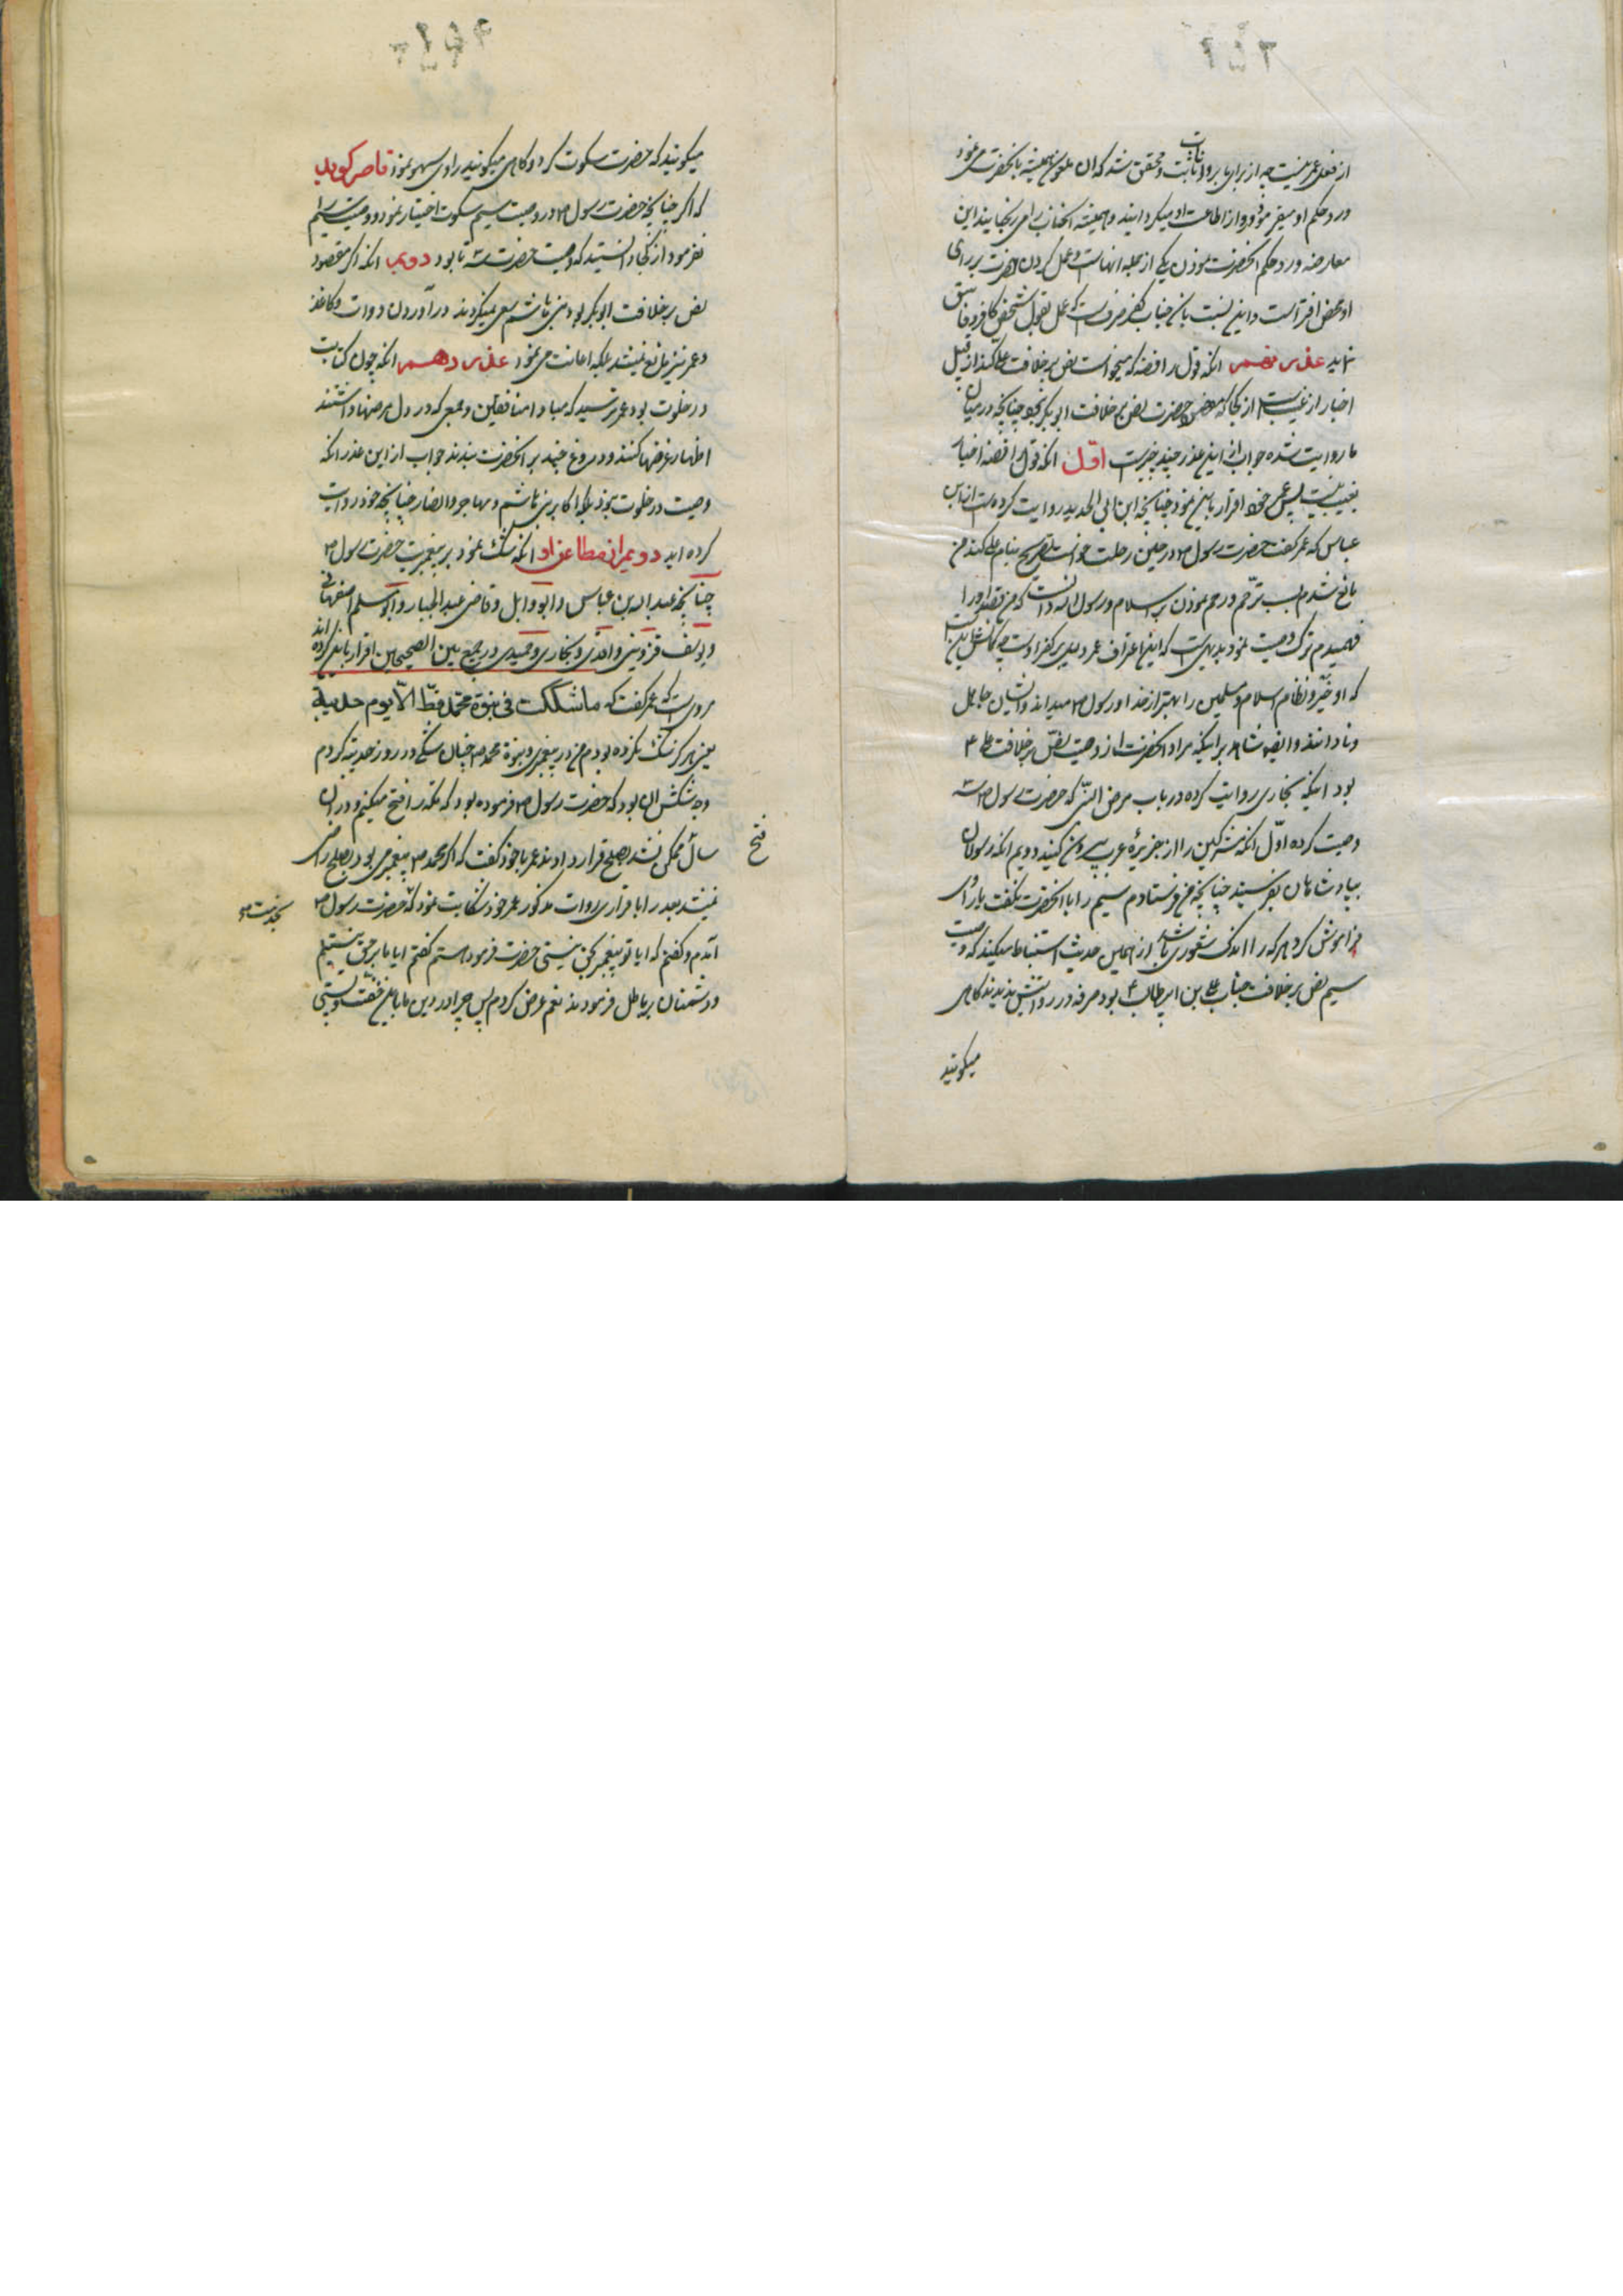 از فعل عمر نیست چه از برای ما بروایات ثابت و محقق شد که ان ملعون همیشه بانحضرت می نمود
و رد حکم او میفرمود و از اطاعت او میکردانید و همیشه انجناب را می رنجانید این
معارضه و رد حکم انحضرت نمودن یکی از جمله انهاست و عمل کردن حضرت بر رای
او محض افتراست و این نسبت بانجناب کفر صرفست که عمل بقول شخص کافر و فاسق
نماید عذر نهم انکه قول رافضه که میخواست نص بر خلافت علی کند از قبیل
اخبار از غیب است از کجا که غرض حضرت نص بر خلافت ابو بکر نبود چنانچه در میان
ما روایت شده جواب از این عذر چند چیز است اول انکه قول رافضه اخبار
بغیب نیست پس عمر خود اقرار باین نمود چنانچه ابن ابی الحدید روایت کرده است از ابن
عباس که عمر گفت حضرت رسول ص در حین رحلت خواست تصریح بنام علی کند من
مانع شدم بسبب ترحم و رحم نمودن بر اسلام و رسول الله دانست که من قصد او را
فهمیدم ترک وصیت نمود بدیهی است که این اعتراف عمر دلیل بر کفر اوست چه
که او خیر و نظام اسلام و مسلمین را بهتر از خدا و رسول ص میداند و ایشان جاهل
و نادانند و ایضا شاهد بر اینکه مراد انحضرت از وصیت نص بر خلافت علی ع
بود اینکه بخاری روایت کرده در باب مرض النبی که حضرت رسول ص سه
وصیت کرده اول انکه مشرکین را از جزیره عرب بیرون کنید دویم انکه رسولان
بپادشاهان بفرستید چنانچه من فرستادم سیم را یا انحضرت نگفت یا راوی
فراموش کرد هر که را اندک شعوری باشد از همین حدیث استنباط میکند که وصیت
سیم نص بر خلافت جناب علی بن ابی طالب ع بود صرفه در روایتش ندیدند کاهی
میکویند
میکویند که حضرت سکوت کرد و کاهی میکویند راوی سهو نمود قاصر کوید
که اکر چنانچه حضرت رسول ص در وصیت سیم سکوت اختیار نمود و وصیت سیم
نفرمود از کجا دانستید که وصیت حضرت سه تا بود دویم انکه اکر مقصود
نص بر خلافت ابو بکر بود بنی هاشم سعی نمیکردند در آوردن دوات و کاغذ
و عمر نیز مانع نمیشد بلکه اعانت می نمود عذر دهم انکه چون کتابت
در خلوت بود عمر ترسید که مبادا منافقین و جمعی که در دل مرضها داشتند
اظهار غرضها کنند و دروغ چند بر انحضرت بندند جواب از این عذر انکه
وصیت در خلوت نبود بلکه اکابر بنی هاشم و مهاجر و انصار چنانچه خود روایت
کرده اید دویم از مطاعن او انکه شک نمود بر پیغمبری حضرت رسول ص
چنانچه عبد الله بن عباس و ابو وابل و قاضی عبد الجبار و ابو مسلم اصفهانی
و یوسف قزوینی و واقدی و بخاری و حمیدی در جمع بین الصحیحین اقرار باین کرده اند
مرویست که عمر گفت که ما شککت فی نبوة محمد قط الا یوم حدیبیة
یعنی هرکز شک نکرده بودم من در پیغمبری و نبوة محمد ص چنان شکی در روز حدیبیه کردم
وجه شکش ان بود که حضرت رسول ص فرموده بود که مکه را فتح میکنم و در ان
سال فتح ممکن نشد بصلح قرار دادند عمر با خود گفت که اکر محمد ص پیغمبر می بود بصلح راضی
نمیشد بعد از ان باقرار روات مذکور عمر خود شکایت نمود که بخدمت حضرت رسول ص
آمدم و گفتم که ایا تو پیغمبر بحق نیستی حضرت فرمود هستم گفتم ایا ما بر حق نیستیم
و دشمنان بر باطل فرمودند نعم عرض کردم پس چرا در دین ما باین خفت و پستی